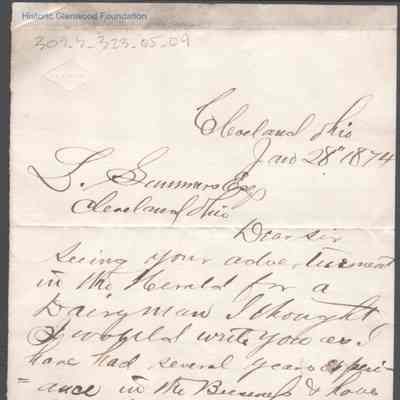 Historic Glenwood Foundation
Cleveland Ohio
Jan 28" 1874
Cleveland Ohio
Dear sir
seeing your advertisment
in the Herald for a
Dairyman I thought
I would write you as I
have had several years experi-
=ance in the Business & have